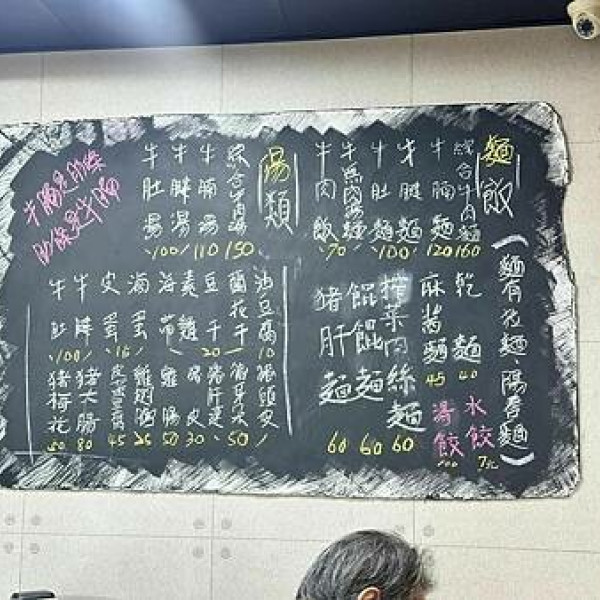 麵飯
(麵有拉麵、陽春麵)
綜合牛肉麵 160
牛腩麵 120
牛腱麵
牛肚麵
100
牛肉湯麵
牛肉飯
70
乾麵 40
麻醬麵 45
榨菜肉絲麵 60
餛飩麵 60
豬肝麵 60
水餃 7元
湯餃 100
湯類
綜合牛肉湯 150
牛腩湯 110
牛腱湯
牛肚湯
100
牛腩是肋條
肋條是牛腩
油豆腐 10
蘭花干
豆干
20
素雞
海帶
滷蛋
皮蛋
15
牛腱
牛肚
100
豬頭皮
50
豬皮 30
雞胗 50
45
豬大腸 80
豬梅花 50